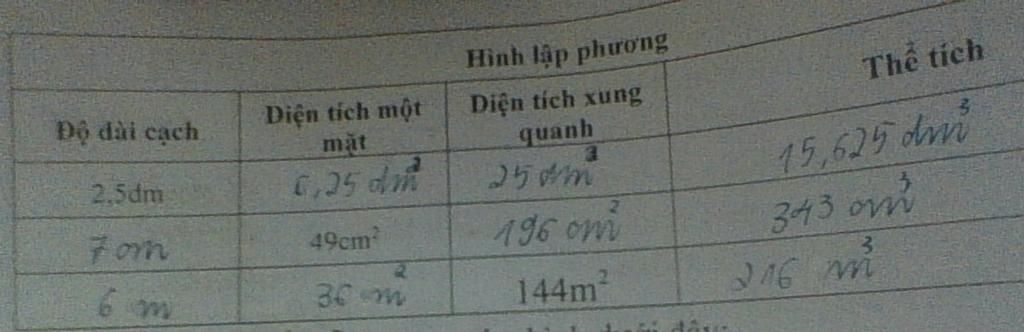 Hình lập phương
Độ dài cạch Diện tích một mặt Diện tích xung quanh Thể tích
2,5dm 6,25 dm² 25 dm² 15,625 dm³
7 cm 49cm² 196 cm² 343 cm³
6 m 36 m² 144m² 216 m³